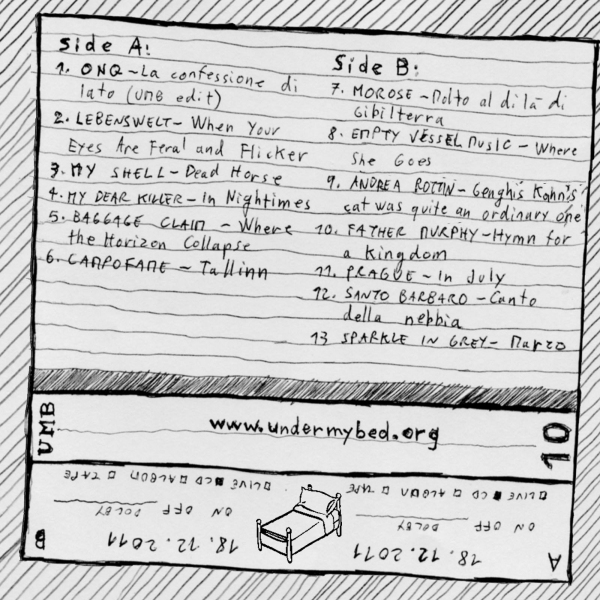 Side A:
1. ONQ – La confessione di
lato (UMB edit)
2. LEBENSWELT – When Your
Eyes Are Feral and Flicker
3. MY SHELL – Dead Horse
4. MY DEAR KILLER – In Nightimes
5. BAGGAGE CLAIM – Where
the Horizon Collapse
6. CAMPOFAME – Tallinn
Side B:
7. MOROSE – Molto al di là di
Gibilterra
8. EMPTY VESSEL MUSIC – Where
She Goes
9. ANDREA ROTTIN – Genghis Kahn's
cat was quite an ordinary one
10. FATHER MURPHY – Hymn for
a kingdom
11. PRAGUE – In July
12. SANTO BARBARO – Canto
della nebbia
13 SPARKLE IN GREY – Marzo
UMB
www.undermybed.org
10
A
18.12.2011
ON OFF DOLBY
LIVE CD ALBUM TAPE
B
18.12.2011
ON OFF DOLBY
LIVE CD ALBUM TAPE